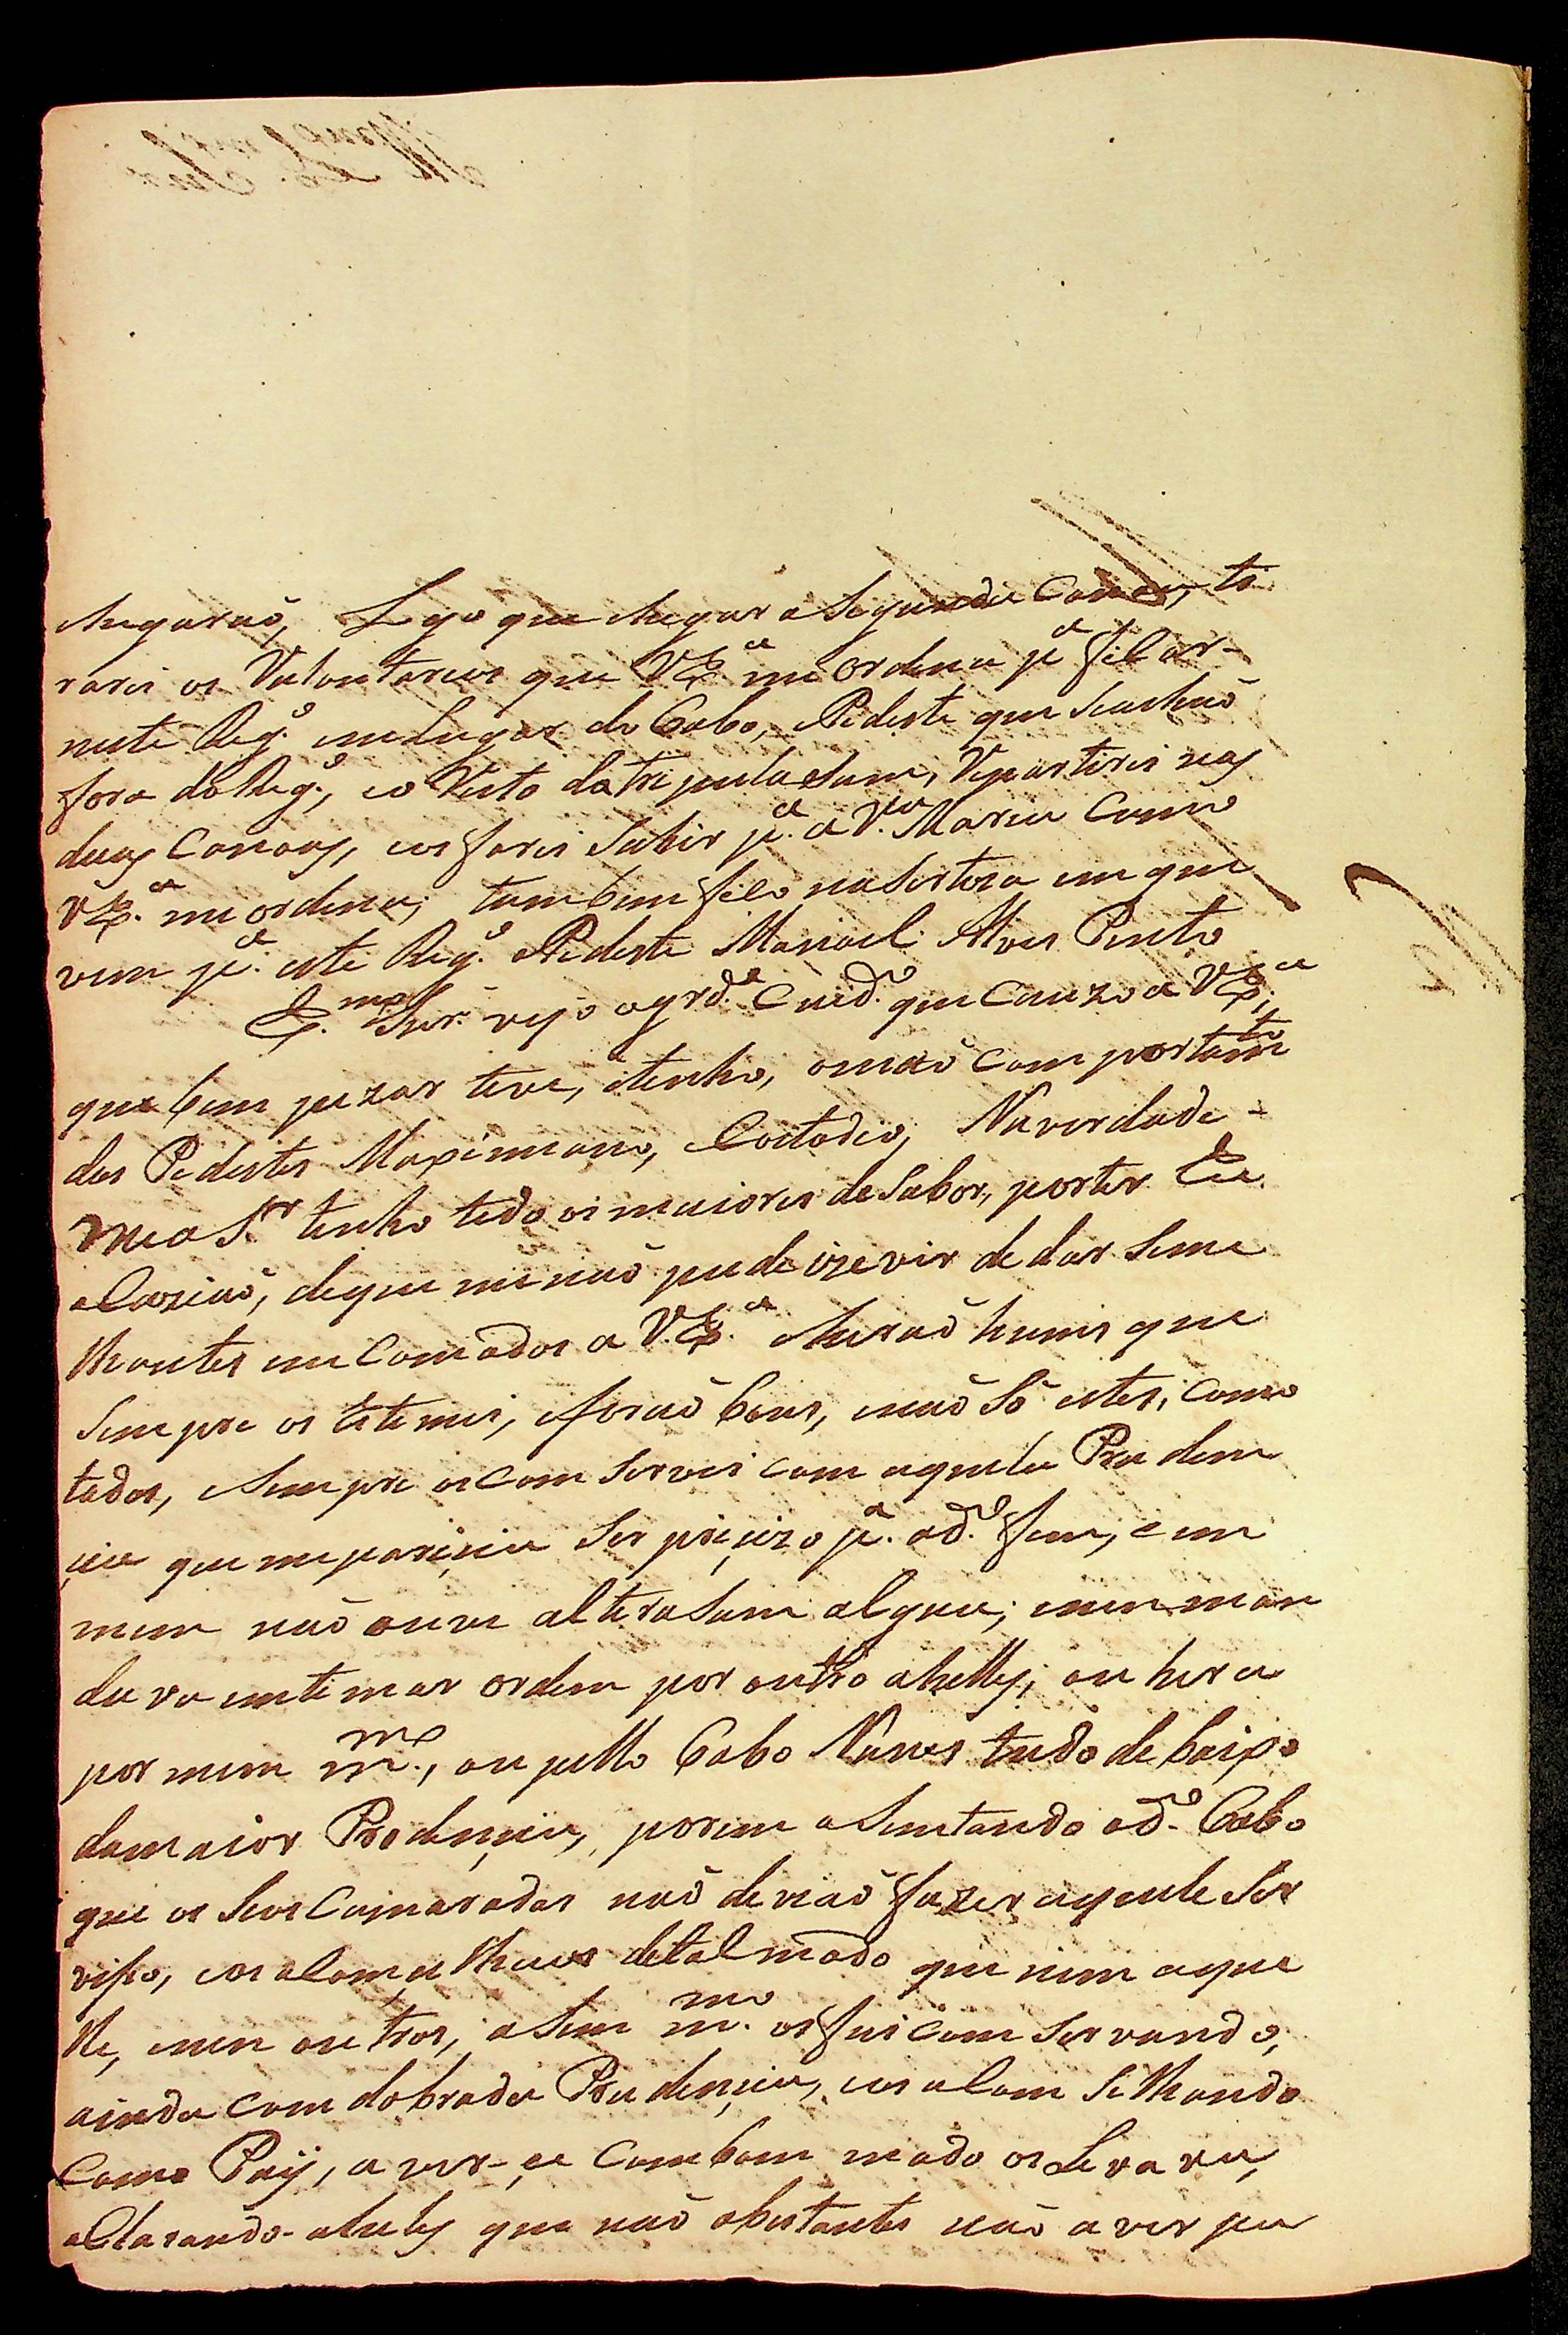 chegaraõ, Logo que chegar a Segunda Canoa, ti
rarei os Valontarios que VEx.ª me ordena p.ª ficar
neste Reg.º em Lugar do Cabo, e Pedeste que Seachaõ
fora do Reg.º, eo Resto da tripulasam, Repartirei nas
duas Canoas, eos farei Subir p.ª a V.ª Maria Como
VEx.ª me ordena; tambem fico na Serteza em que
vem p.ª este Reg.º o Pedeste Manoel Alves Pinto
Ex.mo Snr. vejo a grd.e Cuid.º que Cauzo a VEx.ª,
que bem pezar tive, etenho, o mao Comportam.to
dos Pedestes Maximiano, e Costodio; Na verdade
meo S.r tenho tido os maiores deSabor, por ter Eu
a Cazião, de que me naõ pude izevir de dar Seme
lhantes emComodos a VEx.ª Eheraõ huns que
Sempre os estemei, eforaõ bons, enaõ Só estes, Como
todos, e Sempre os ComServei Com aquela Prudem
çia que me pareçia Ser preçizo p.ª o d.º fim, e em
mim naõ ouve alteraSam algua; enem man
dava emtimar ordem por outro a helles; ou hera
por mim m.mo, ou pello Cabo Nunes tudo debaixo
da maior Prodençia, porem aSentando o d.º Cabo
que os Seos Camaradas naõ deviaõ fazer aquele Ser
viso, eos alomselhava de tal modo que nem aque
lle, enem outros; aSim m.mo os fui ComServando,
ainda Com dobrada Prudençia, eos alomSelhando
Como Pay, a ver-se Com bom modo os Levava,
aClarando-a heles que naõ obstantes naõ aver pa